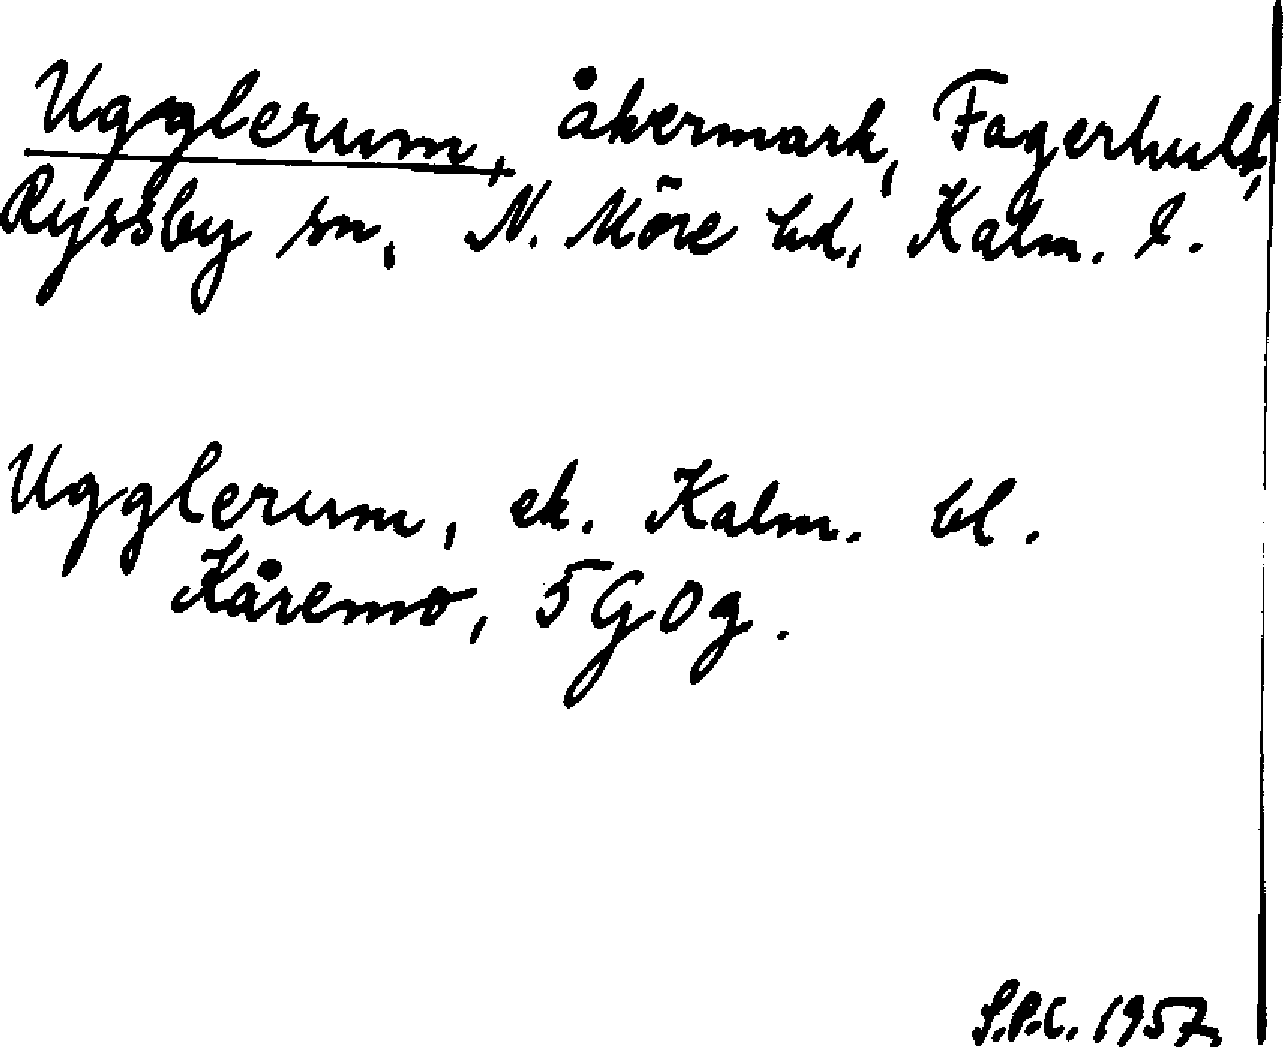 Ugglerum, åkermark, Fagerhult,
Ryssby sn, N. Möre hd, Kalm. l.
Ugglerum, ek. Kalm. bl.
Kåremo, 5G0g.
S.P.C. 1957